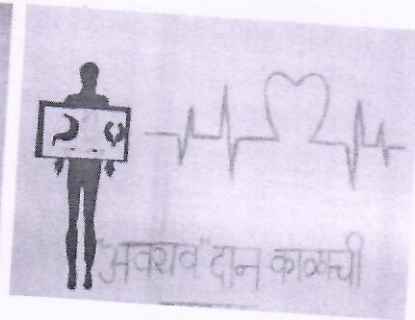 "अवयव" दान काळाची